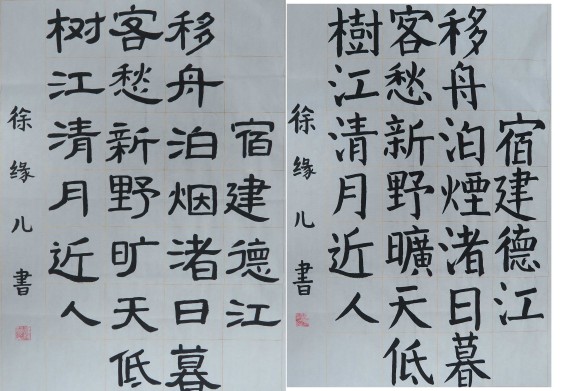 宿建德江
移舟泊烟渚日暮
客愁新野旷天低
树江清月近人
徐缘儿書
宿建德江
移舟泊煙渚日暮
客愁新野曠天低
樹江清月近人
徐缘儿書